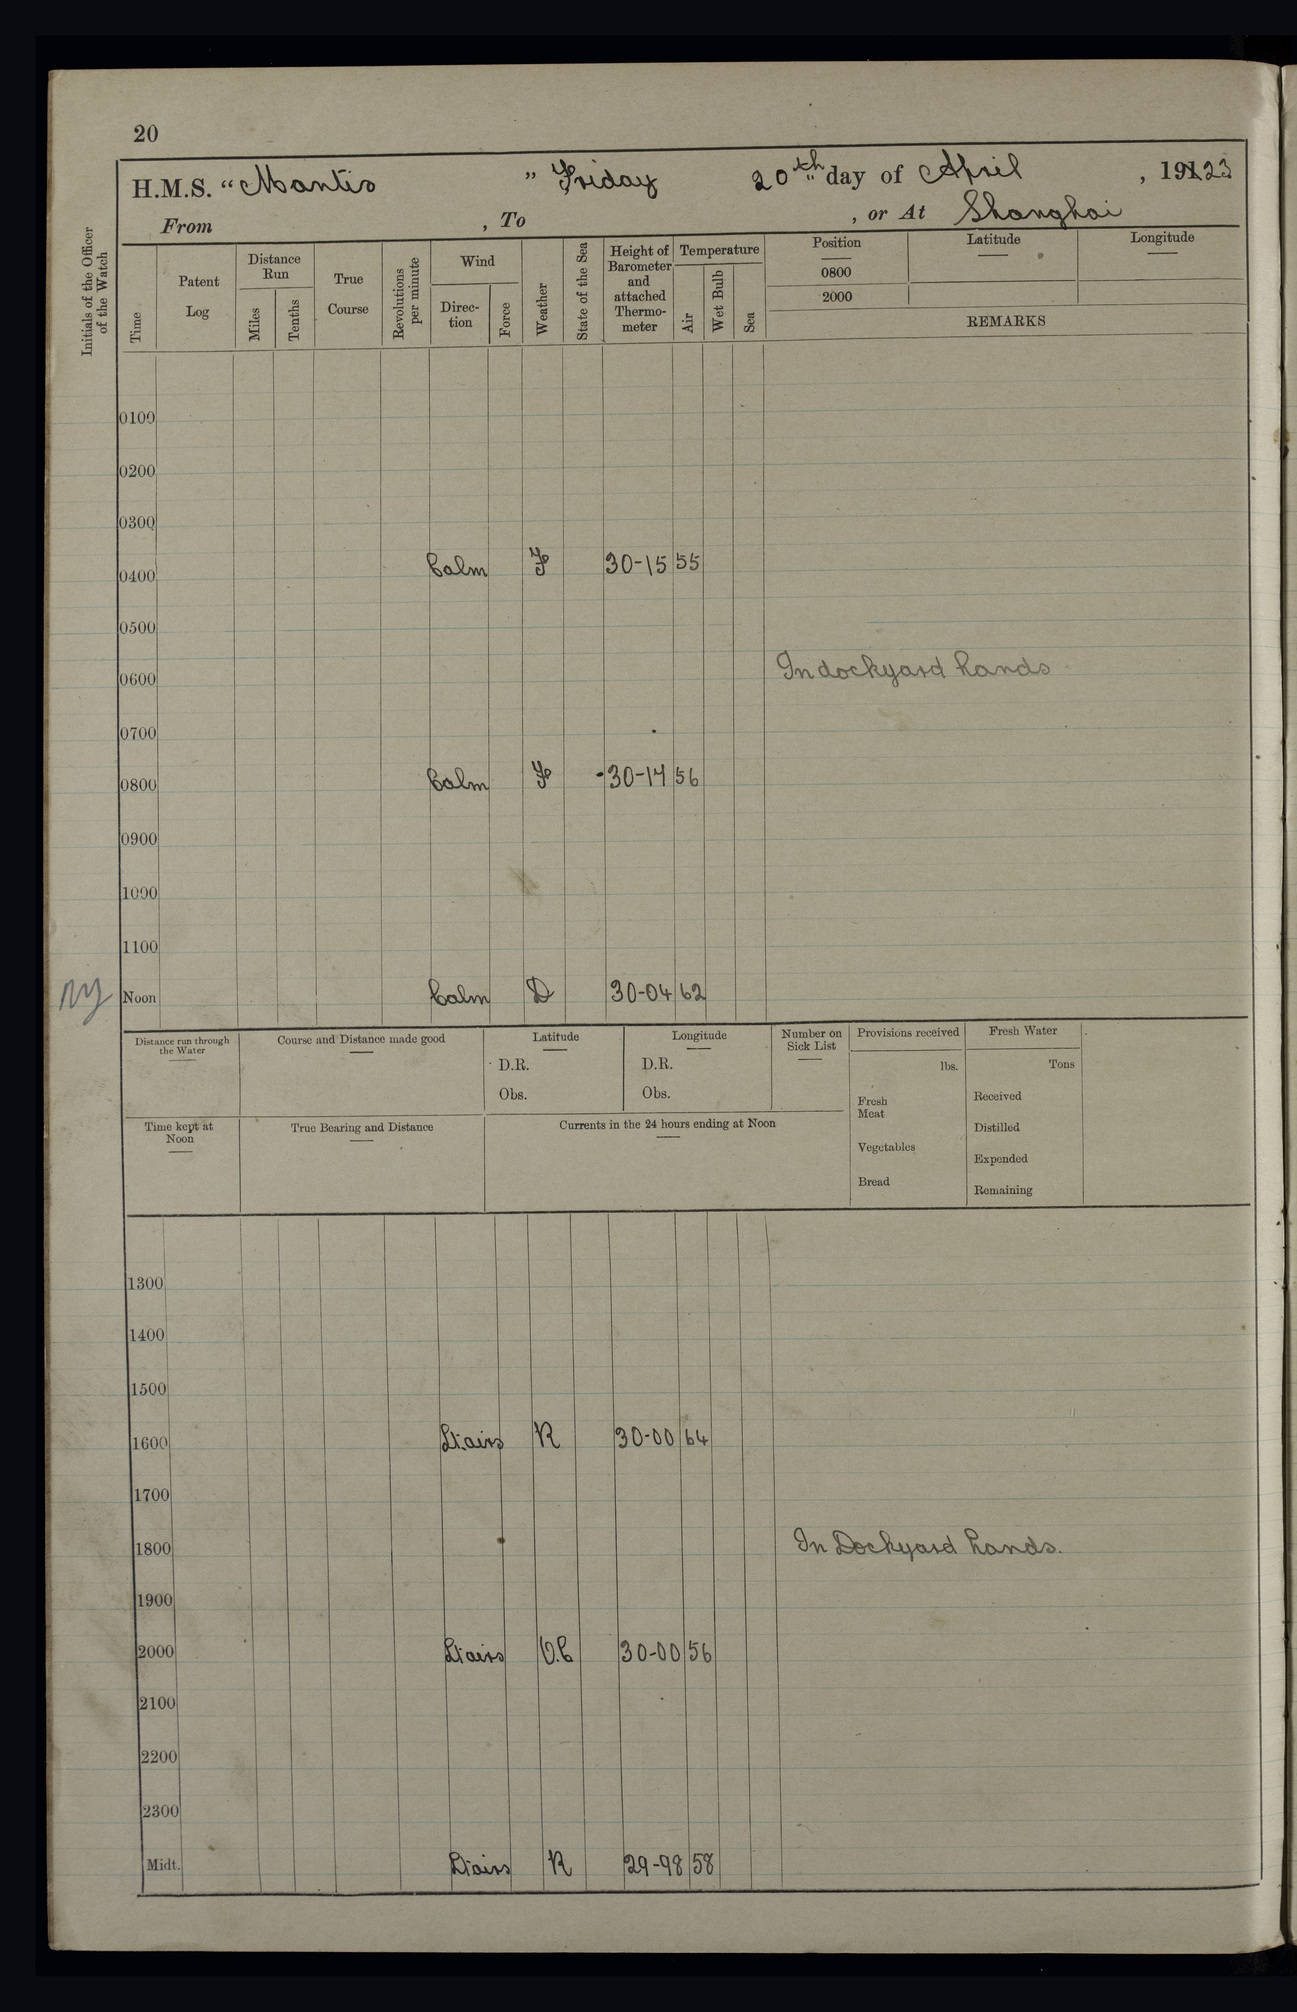 20
H.M.S. "Mantis" Friday 20th day of April, 1923
From , To , or At Shanghai
Initials of the Officer of the Watch
Time
Patent Log
Distance Run
Miles
Tenths
True Course
Revolutions per minute
Wind
Direc-tion
Force
Weather
State of the Sea
Height of Barometer and attached Thermo-meter
Temperature
Air
Wet Bulb
Sea
Position
Latitude
Longitude
0800
2000
REMARKS
0100
0200
0300
0400 Calm F 30-15 55
0500
0600 In dockyard hands
0700
0800 Calm F 30-14 56
0900
1000
1100
Noon Calm D 30-04 62
Distance run through the Water
Course and Distance made good
Latitude
D.R.
Obs.
Longitude
D.R.
Obs.
Number on Sick List
Provisions received
lbs.
Fresh Meat
Vegetables
Bread
Fresh Water
Tons
Received
Distilled
Expended
Remaining
Time kept at Noon
True Bearing and Distance
Currents in the 24 hours ending at Noon
1300
1400
1500
1600 Lt airs R 30-00 64
1700
1800 In Dockyard hands.
1900
2000 Lt airs O.C 30-00 56
2100
2200
2300
Midt. Lt airs R 29-98 58